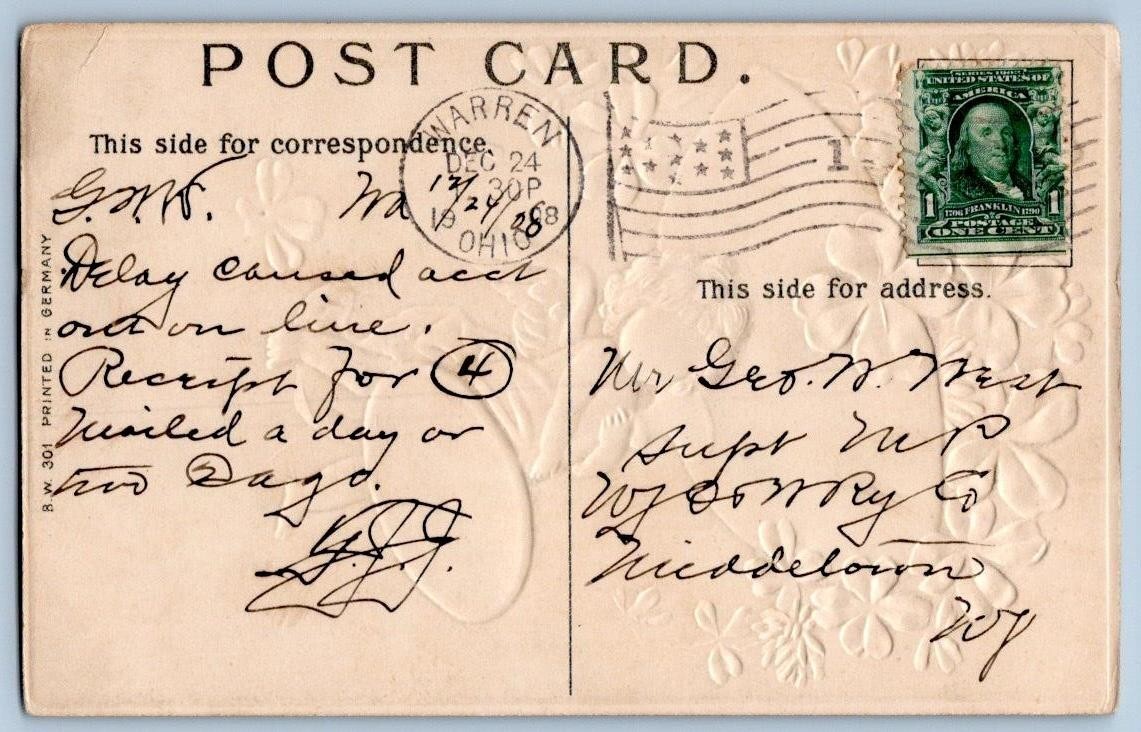 POST CARD.
This side for correspondence.
WARREN
DEC 24
30P
19 08
OHIO
1
SERIES 1902
UNITED STATES OF
AMERICA
1 1706 FRANKLIN 1790 1
POSTAGE
ONE CENT
B.W. 301 PRINTED IN GERMANY
G.W.W. 12/24/08
Delay caused acct
out on line.
Receipt for 4
mailed a day or
two ago.
This side for address.
Mr Geo. W. West
Supt M P
NY O & W Ry Co
Middletown
NY